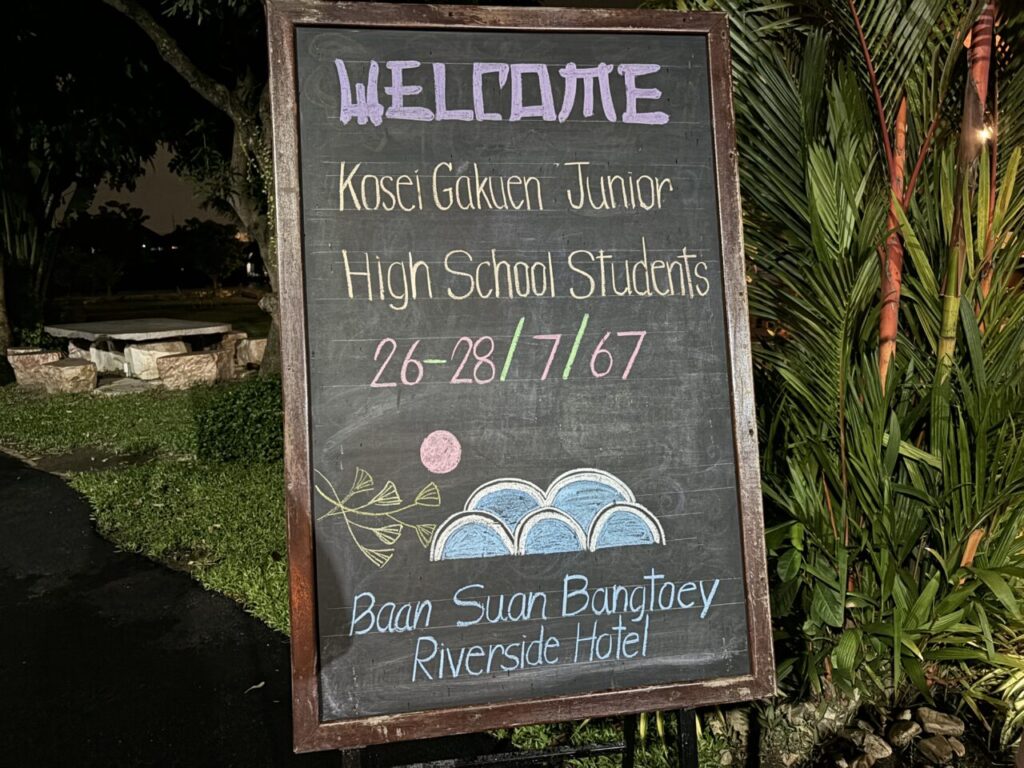 WELCOME
Kosei Gakuen Junior
High School Students
26-28/7/67
Baan Suan Bangtoey
Riverside Hotel